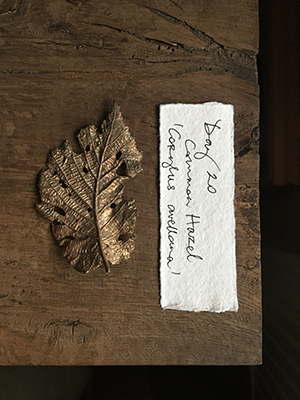 Day 20
Common Hazel
'Corylus avellana'